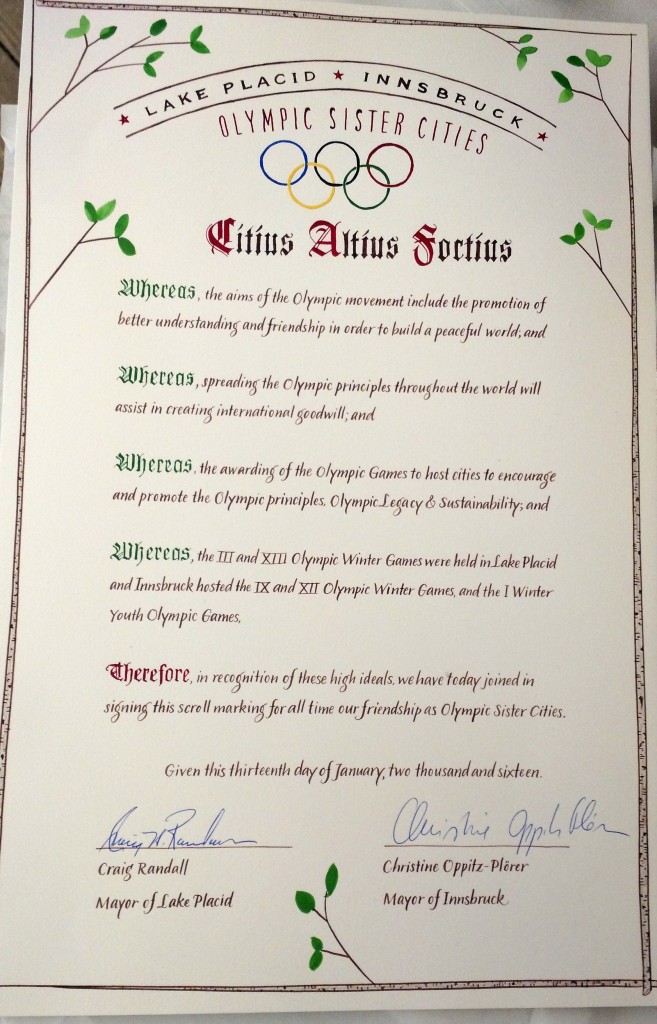 ★ LAKE PLACID ★ INNSBRUCK ★
OLYMPIC SISTER CITIES
Citius Altius Foctius
Whereas, the aims of the Olympic movement include the promotion of
better understanding and friendship in order to build a peaceful world; and
Whereas, spreading the Olympic principles throughout the world will
assist in creating international goodwill; and
Whereas, the awarding of the Olympic Games to host cities to encourage
and promote the Olympic principles, Olympic Legacy & Sustainability; and
Whereas, the III and XIII Olympic Winter Games were held in Lake Placid
and Innsbruck hosted the IX and XII Olympic Winter Games, and the I Winter
Youth Olympic Games,
Therefore, in recognition of these high ideals, we have today joined in
signing this scroll marking for all time our friendship as Olympic Sister Cities.
Given this thirteenth day of January, two thousand and sixteen.
Craig W. Randall
Christine Oppitz-Plörer
Craig Randall
Christine Oppitz-Plörer
Mayor of Lake Placid
Mayor of Innsbruck